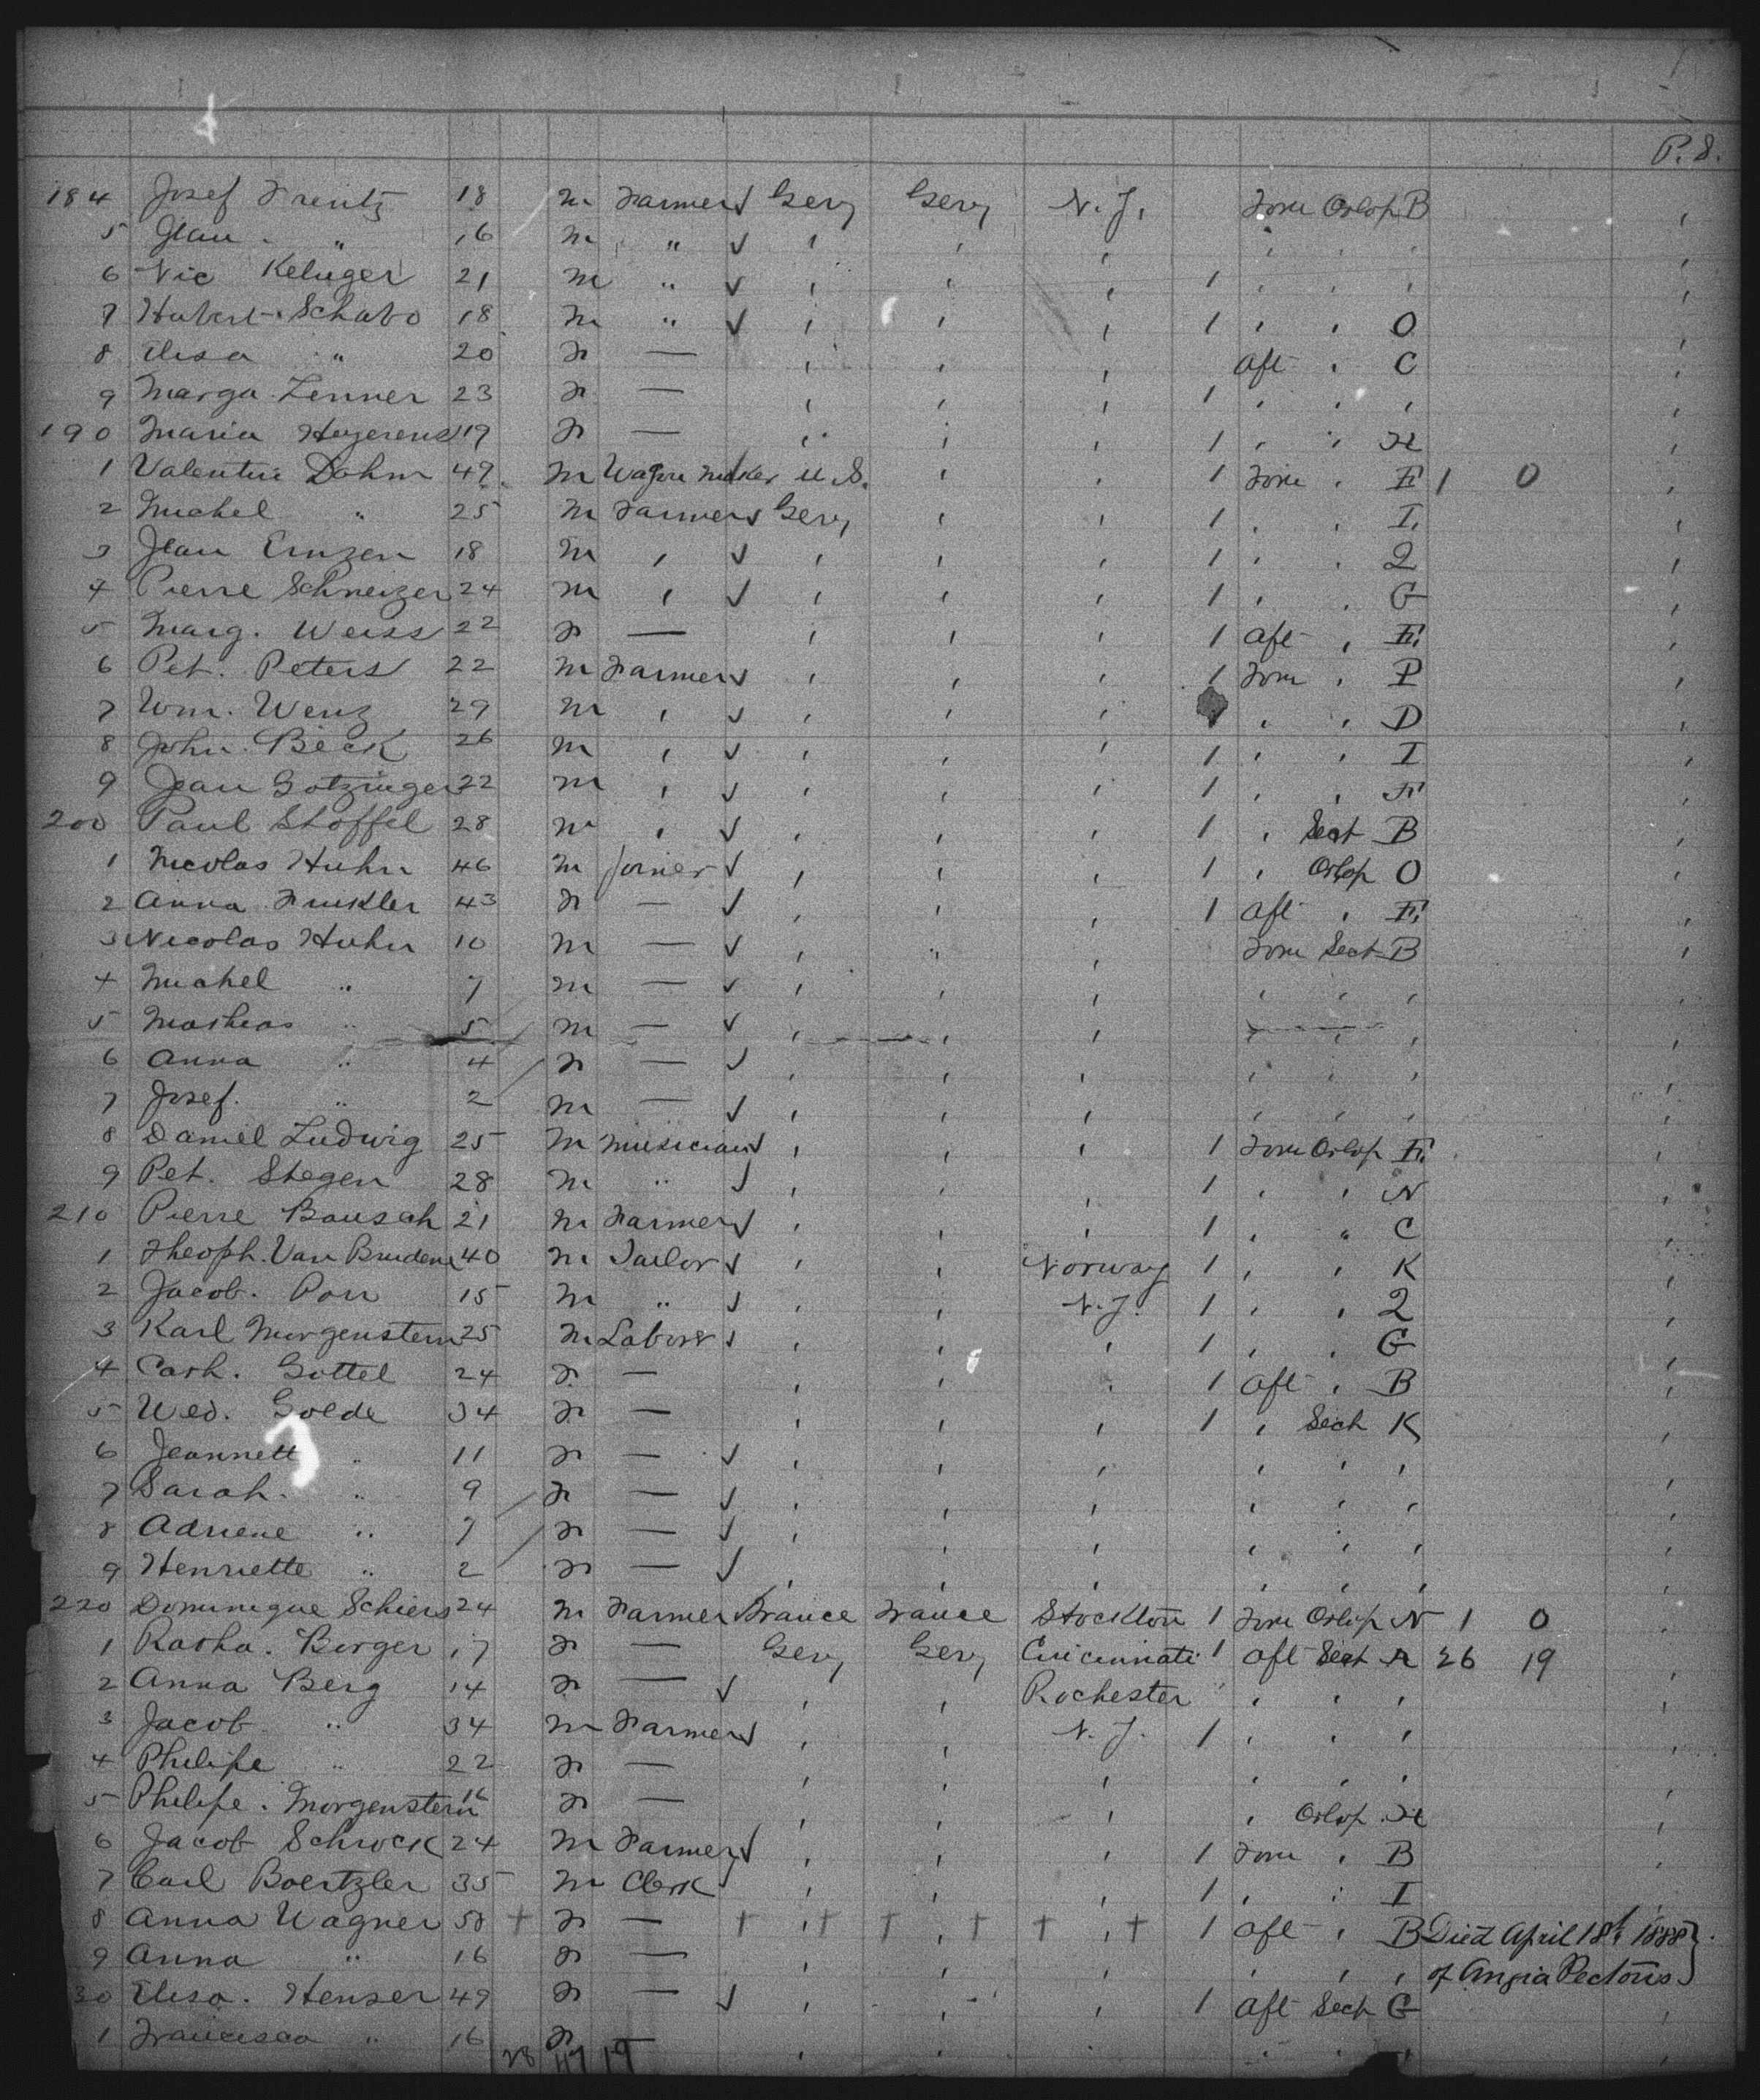 P. 8.
184 Josef Frentz 18 m Farmer √ Gery Gery N.J. Forw Orlop B
5 Jean " 16 m " √ , , , , , ,
6 Nic Keluger 21 m " √ , , , 1 , , ,
7 Hubert Schabo 18 m " √ , , , 1 , , O
8 Elisa " 20 F — , , , Aft , C
9 Marga Zenner 23 F — , , , 1 , , ,
190 Maria Heyerens 19 F — , , , 1 , , H
1 Valentin Dahm 49 m Wagon maker U.S. , , 1 Forw , E 1 0
2 Michel " 25 m Farmer √ Gery , , 1 , , I
3 Jean Emzen 18 m , √ , , , 1 , , Q
4 Pierre Schneizer 24 m , √ , , , 1 , , G
5 Marg. Weiss 22 F — , , , 1 Aft , E
6 Pet. Peters 22 m Farmer √ , , , 1 Forw , P
7 Wm. Wenz 29 m , √ , , , , , D
8 John Beck 26 m , √ , , , 1 , , I
9 Jean Gotzinger 22 m , √ , , , 1 , , F
200 Paul Stoffel 28 m , √ , , , 1 , Sect B
1 Nicolas Huhn 46 m Joiner √ , , , 1 , Orlop O
2 Anna Finkler 43 F — √ , , , 1 Aft , E
3 Nicolas Huhn 10 m — √ , " , Forw Sect B
4 Michel " 7 m — √ , , , , , ,
5 Mathias " 5 m — √ , , , , ,
6 Anna " 4 F — √ , , , , , ,
7 Josef " 2 m — √ , , , , , ,
8 Daniel Ludwig 25 m Musician √ , , , 1 Forw Orlop E
9 Pet. Stegen 28 m " √ , , , 1 , , N
210 Pierre Bausch 21 m Farmer √ , , , 1 , " C
1 Theoph. Van Brudene 40 m Tailor √ , , Norway 1 , , K
2 Jacob. Porr 15 m " √ , , N.J. 1 , , Q
3 Karl Morgenstern 25 m Labour √ , , , 1 , , G
4 Cath. Gottel 24 F — , , , 1 Aft , B
5 Wed. Golde 34 F — , , , 1 , Sect K
6 Jeannett " 11 F — √ , , , , , ,
7 Sarah " 9 F — √ , , , , , ,
8 Adriene " 7 F — √ , , , , , ,
9 Henriette " 2 F — √ , , , , , ,
220 Dominique Schiers 24 m Farmer France France Stockton 1 Forw Orlop N 1 0
1 Katha. Berger 17 F — Gery Gery Cincinnati 1 Aft Sect A 26 19
2 Anna Berg 14 F — √ , , Rochester , , ,
3 Jacob " 34 m Farmer √ , , N.J. 1 , , ,
4 Philipe " 22 F — , , , , , ,
5 Philipe. Morgenstern 16 F — , , , , Orlop H
6 Jacob Schrock 24 m Farmer √ , , , 1 Forw , B
7 Carl Boertzler 35 m Clerk , , , 1 , , I
8 Anna Wagner 50 † F — † , † † , † † , † 1 Aft , B Died April 18th 1888
9 Anna " 16 F — , , , , , , of Angia Pectoris
30 Elisa. Henser 49 F — √ , , , 1 Aft Sect G
1 Francisca " 16 F — , , , , , ,
28 47 19